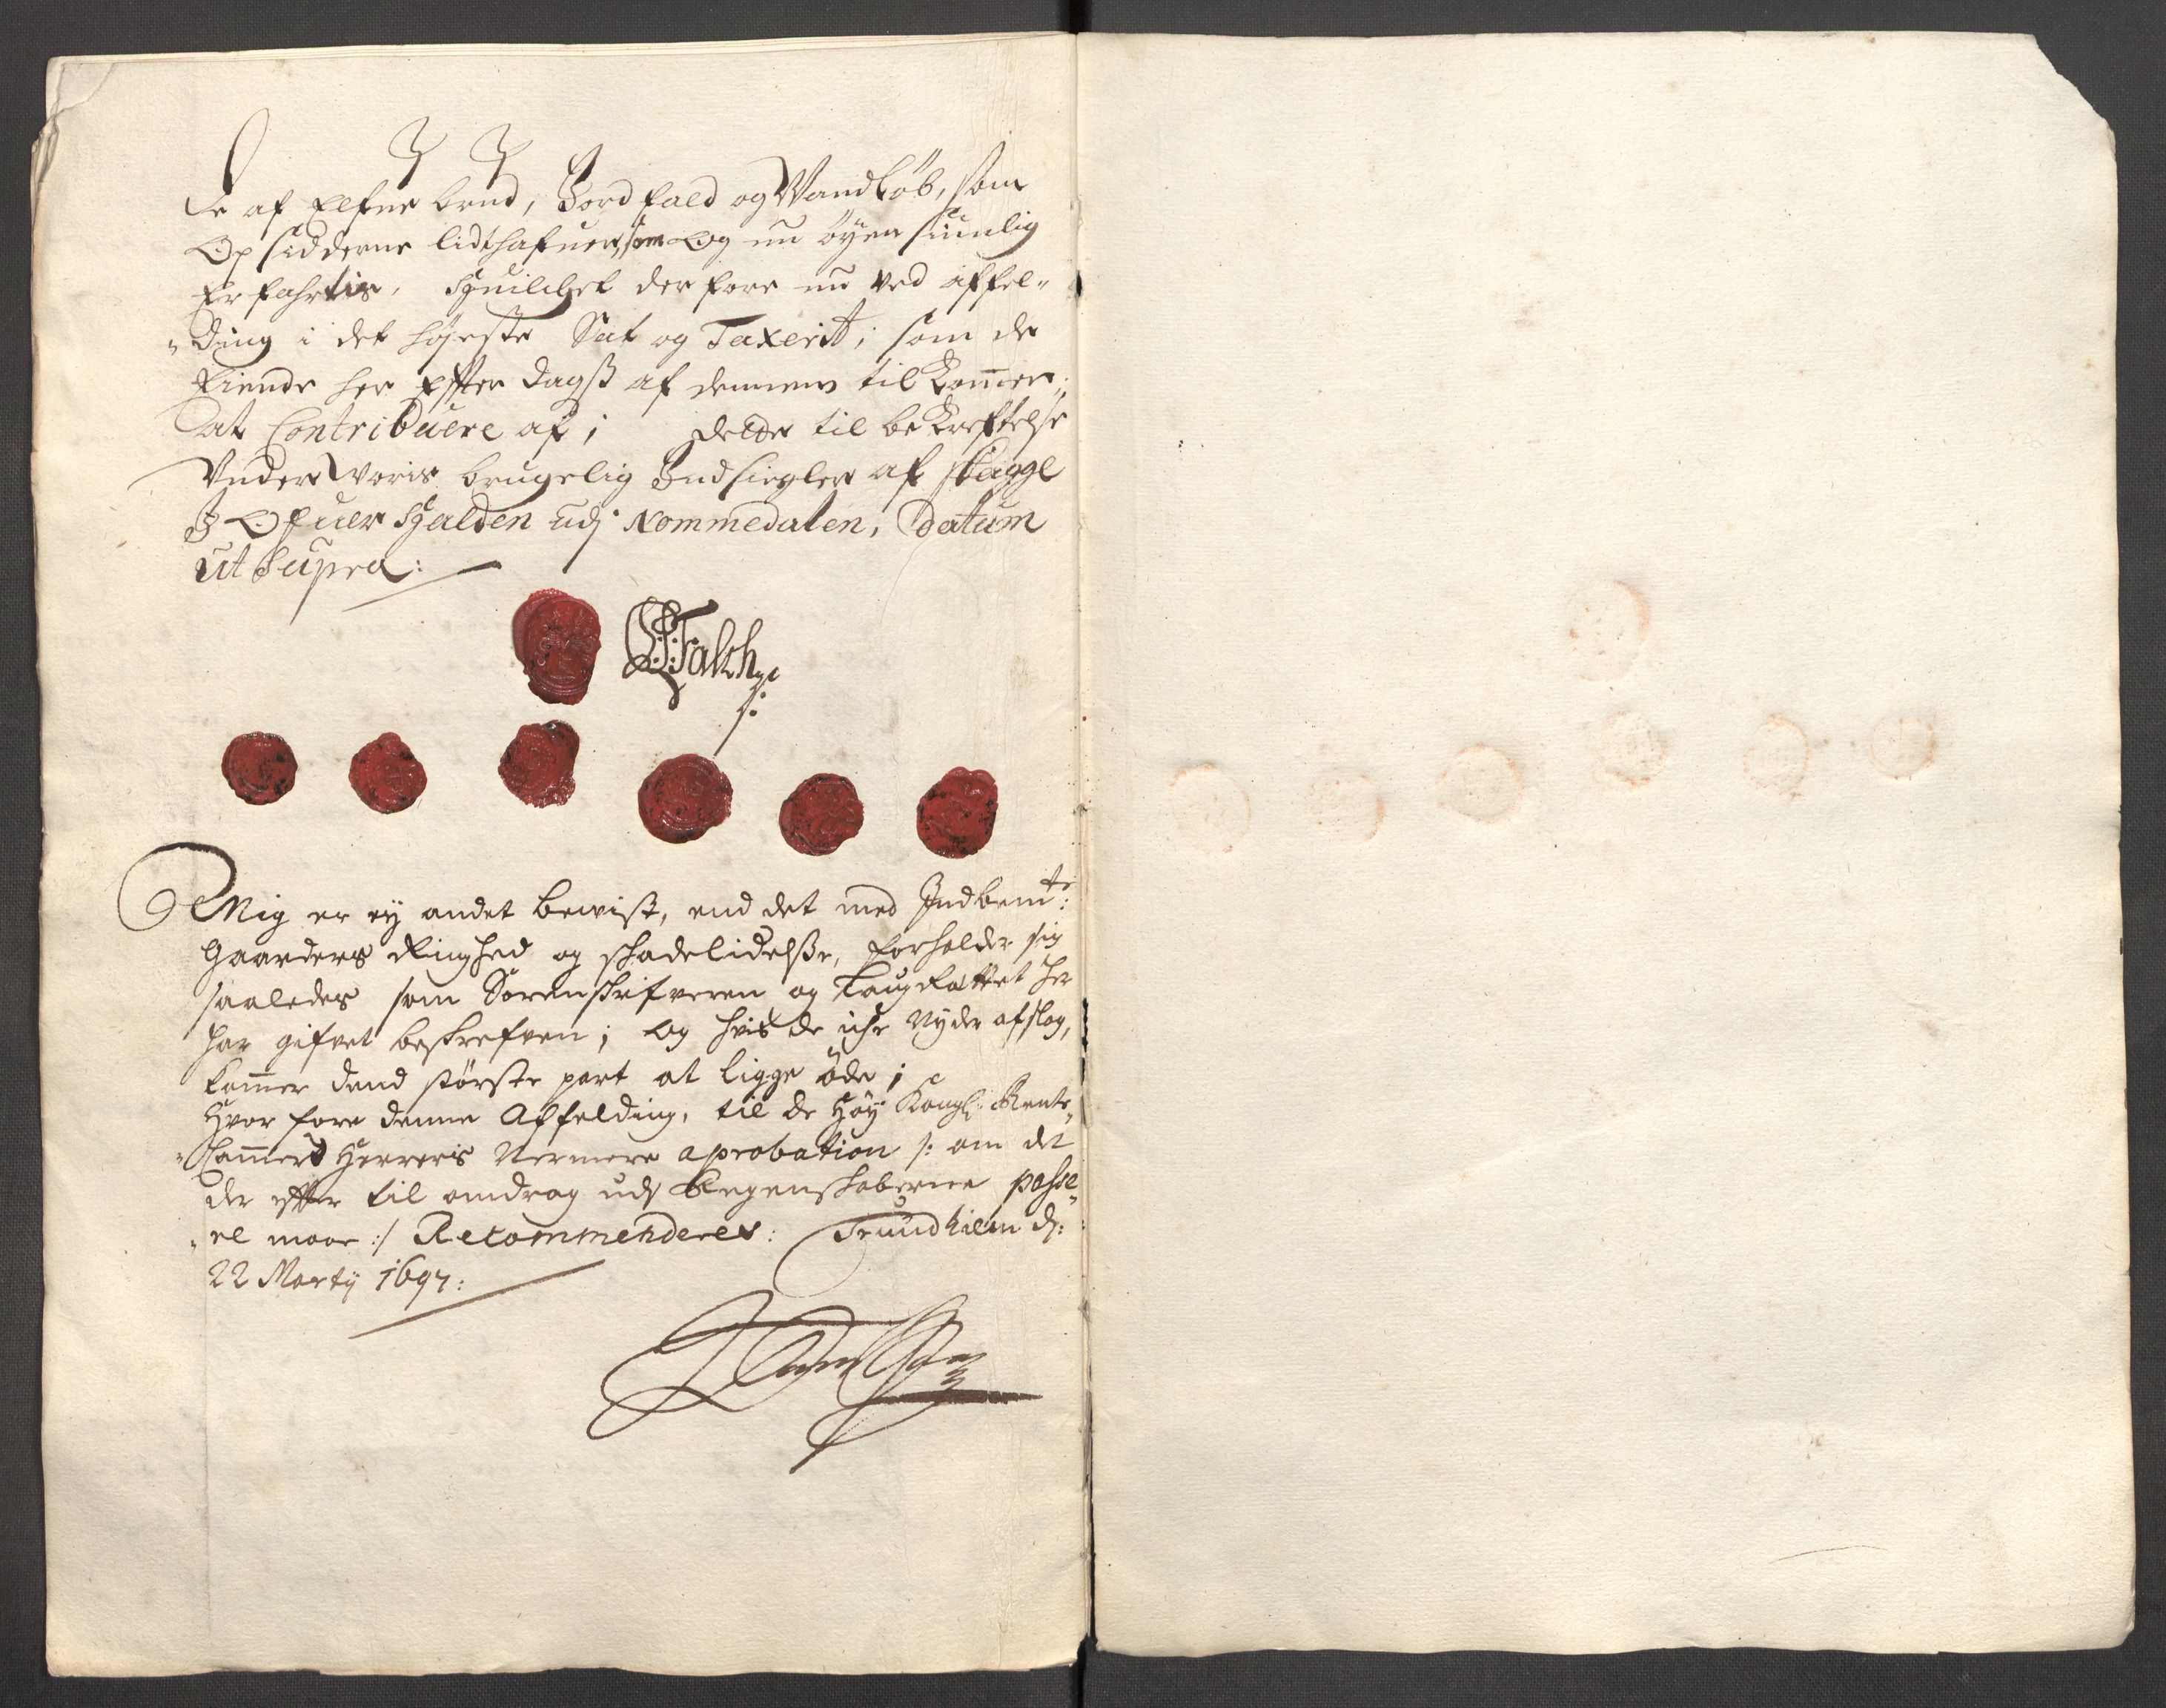 de af Elfne brud, Jord fald og Vandløb, som
Opsidderne lidt hafuer, som og nu øyensiunlig
Erfahris, huilchet derfore nu ved affel-
ding i det høyeste Sat og Taxerit, som de
Kiende her effter dags af dennem til kommer,
at Contribuere af; Dettes til bekreftelse
Under Voris brugelig Indsiegler af Skagge
I Ofuer Halden udj Nommedalen, Datum
ut Supra:
Falch
Mig er ey andet bevist, end det med Indbemt:
Gaarders Ringhed og schadelidelsse, forholder sig
saaledes som Sorenskrifveren og Laugrættet her
har gifvet beskrefven; og hvis de iche nyder afslag,
kommer dend største part at ligge øde;
Hvorfore denne Affelding, til de Høy Kongl: Rente-
Cammers Herrers nermere aprobation /: om det
der effter til omdrag udj Regenskaberne passe-
re maae :/ Recommenderes: Trundhiem d:
22 Marty 1697: